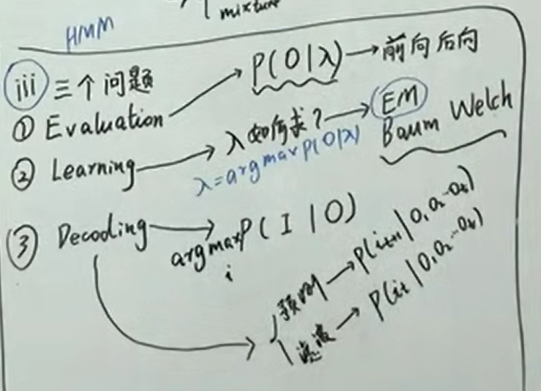 mixture
HMM
iii 三个问题
① Evaluation → P(O|λ) → 前向后向
② Learning → λ如何求? → EM
Baum Welch
λ=argmax P(O|λ)
③ Decoding → argmax P(I|O)
i
预测 → P(i_{t+1}|O_1 O_2 … O_t)
滤波 → P(i_t|O_1 O_2 … O_t)